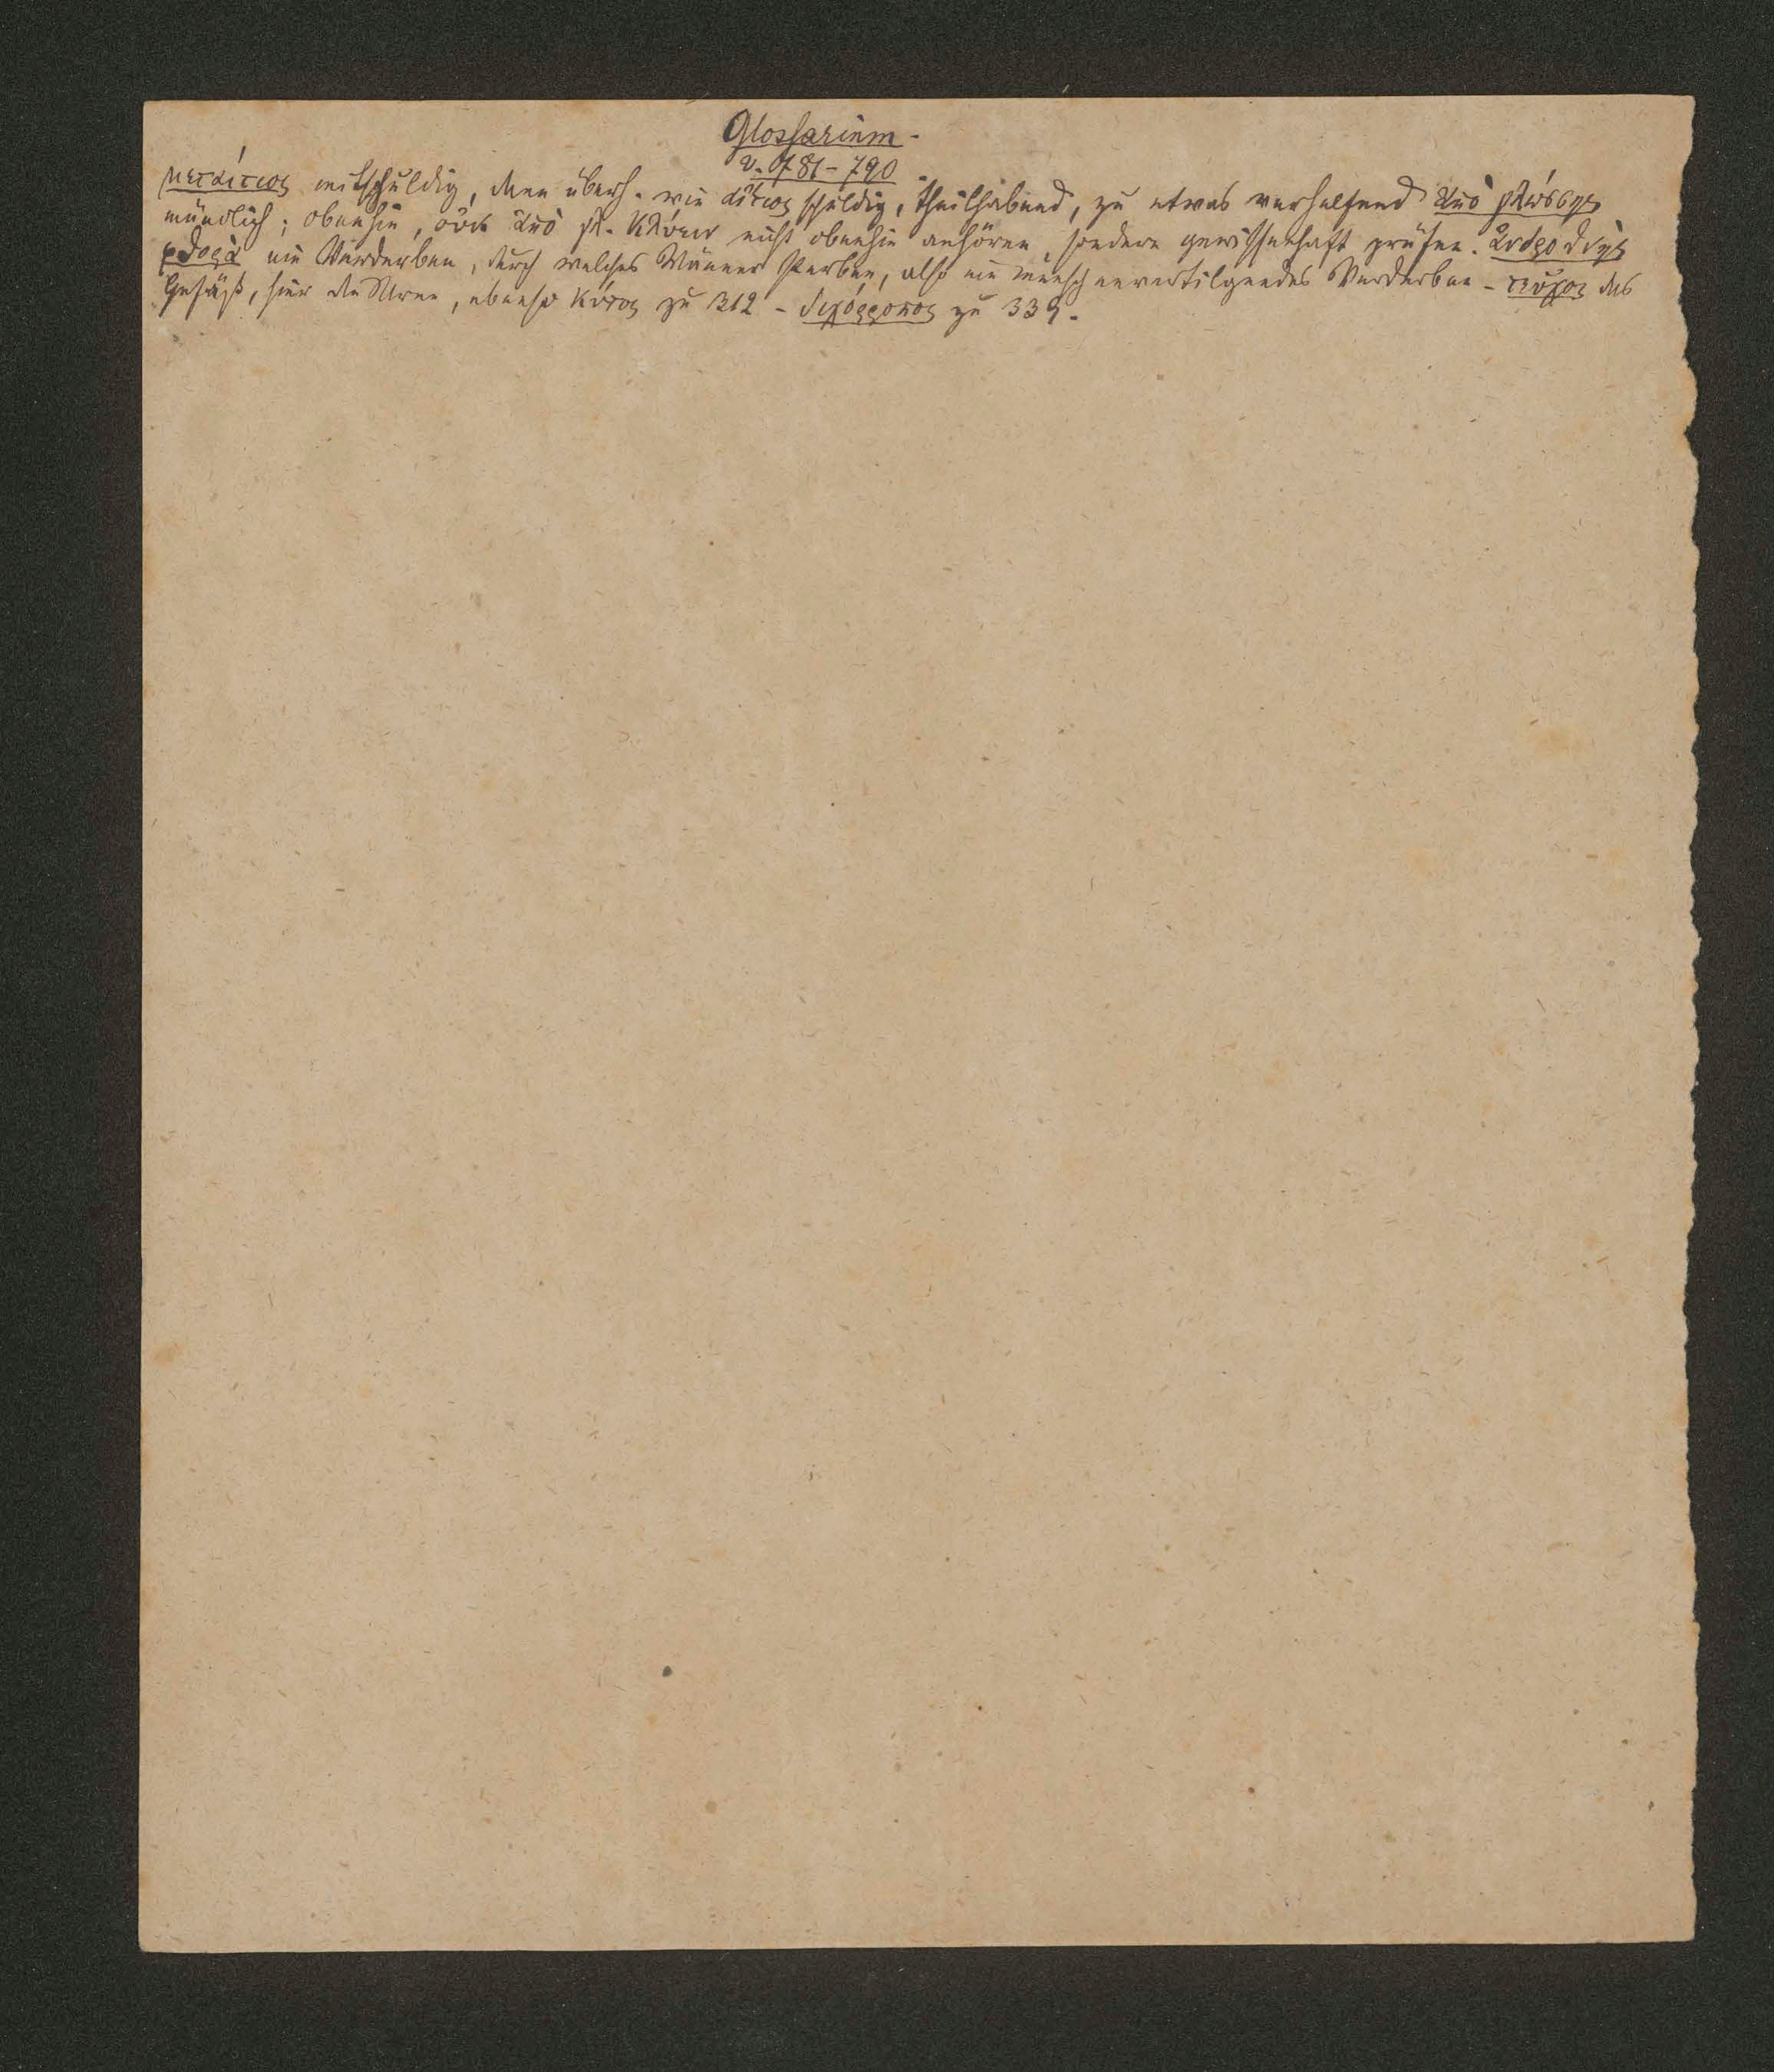 Glossarium.
v. 781-790.
μεταίτιος mitschuldig, dann überh. wie αἴτιος schuldig, theilhabend, zu etwas verhelfend ἀπὸ γλώσσης
mündlich; obenhin, οὐκ ἀπὸ γλ. κλύειν nicht obenhin anhören, sondern gewissenhaft prüfen. ἀνδροθνής
φθορά ein Verderben, durch welches Männer sterben, also ein menschenvertilgendes Verderben - τεῦχος das
Gefäß, hier die Urne, ebenso κύτος zu 312 - διχόρροπος zu 339.